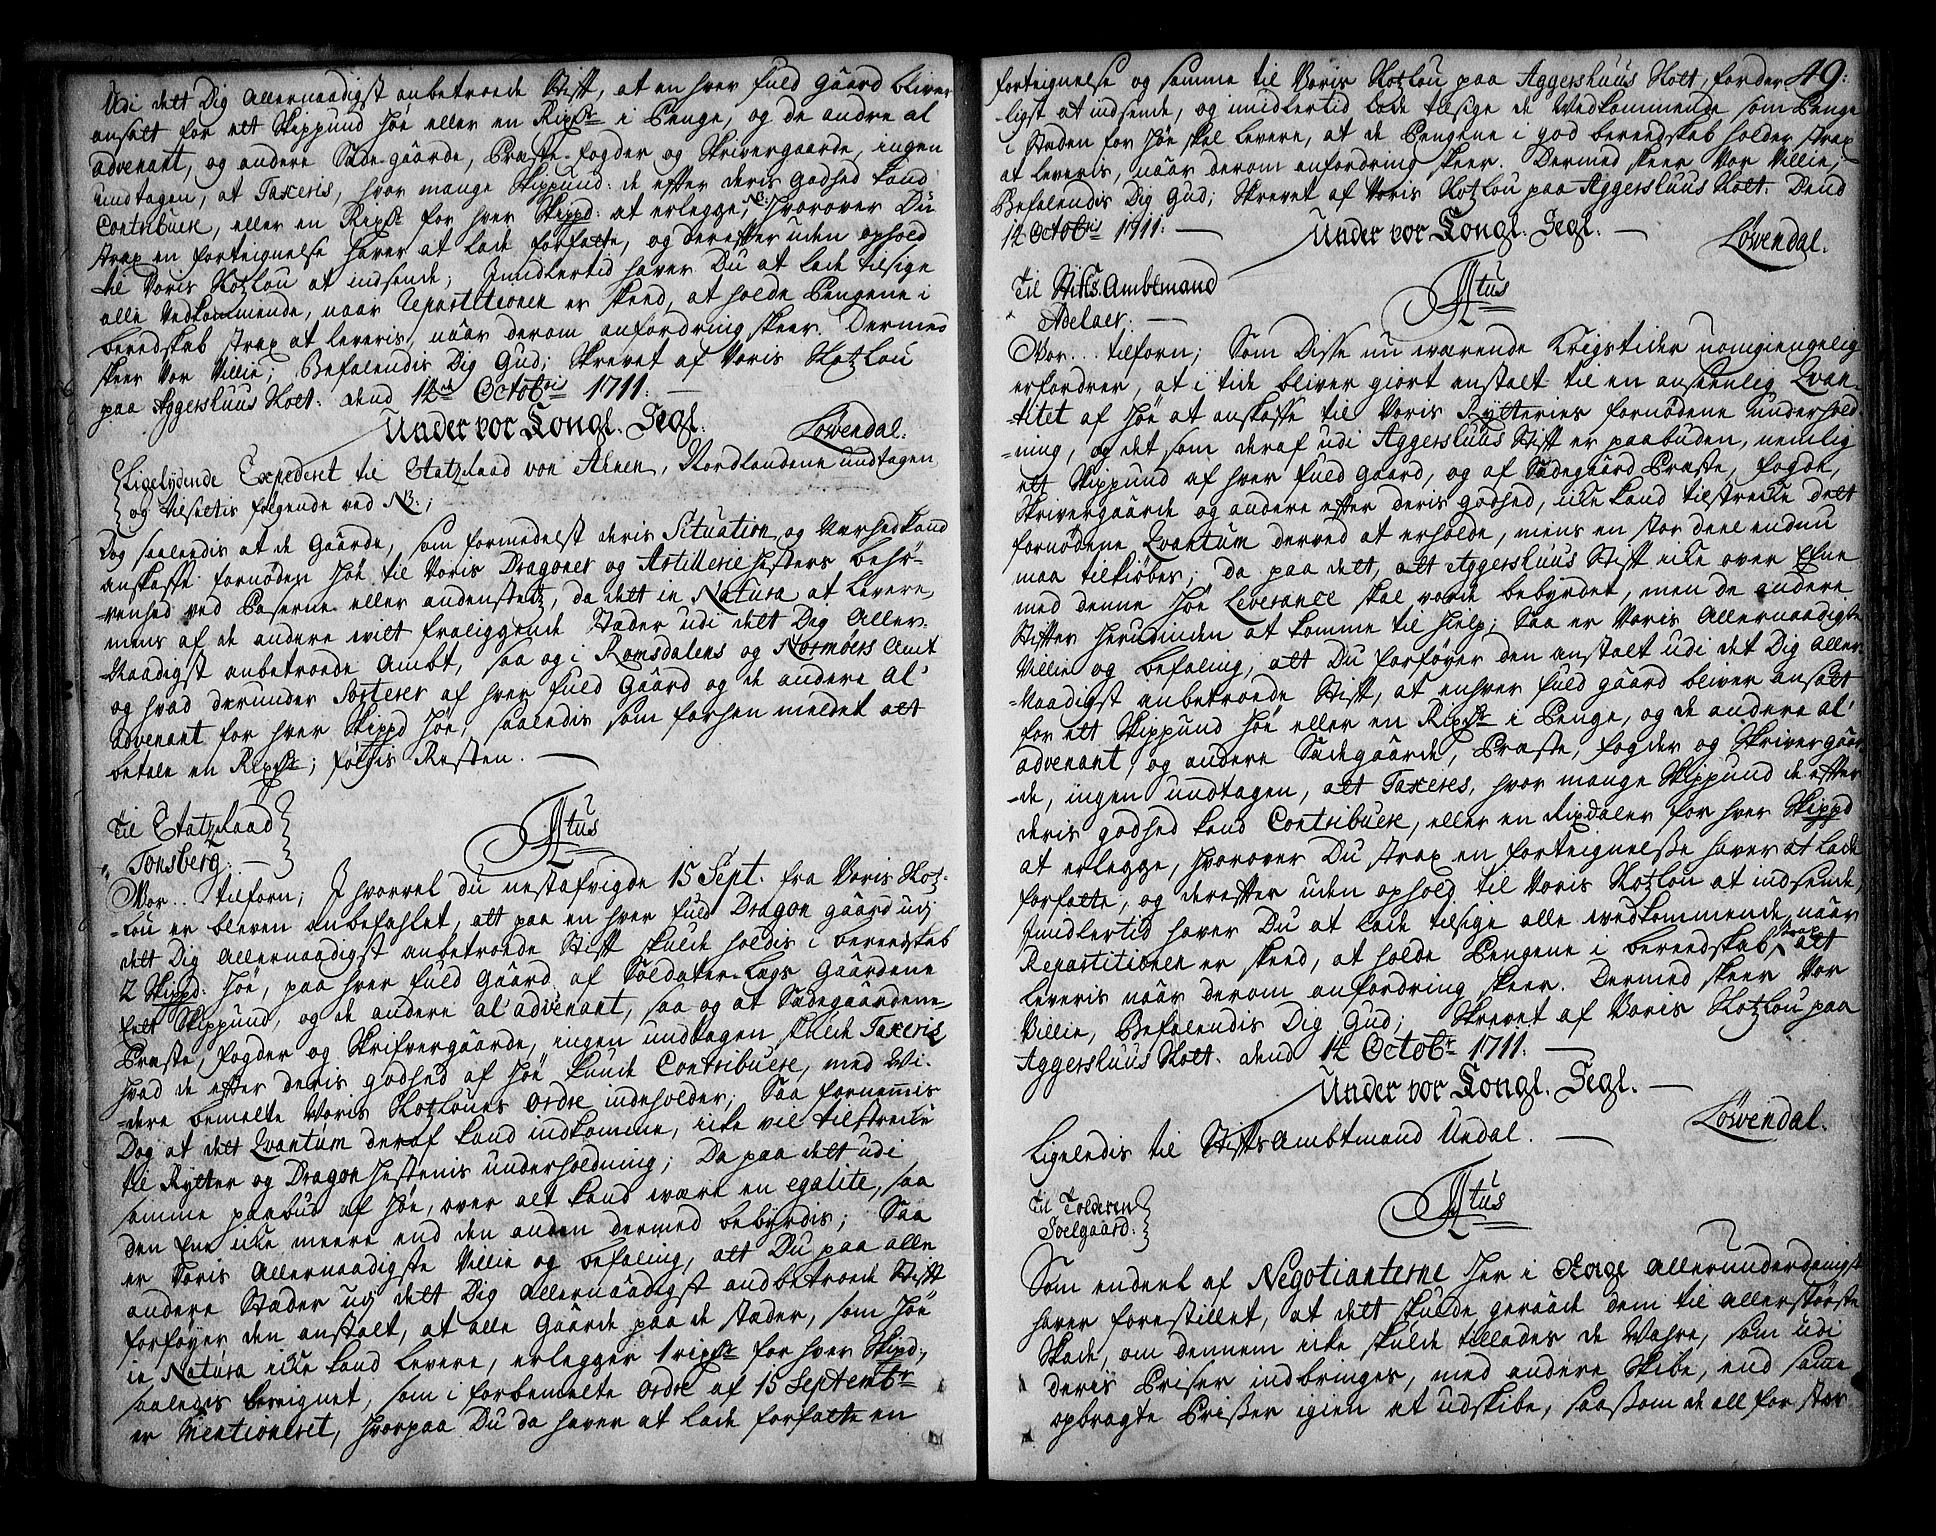 Udi dett Dig Allernaadigst anbetroede Stift, at en hver fuld Gaard bliver
ansatt for ett Skippund Høe eller en Rixdr i Penge, og de andre al
advenant, og andere Sæde-gaarde, Præste-fogder og Skrivergaarde, ingen
undtagen, at Taxeris, hvor mange Skippund: de efter deris godhed kand
Contribuere, eller en Rixdr for hver Skippd: at erlegge; NB: Hvorover Du
strax en forteignelse haver at lade forfatte, og derefter uden ophold
til Voris Slotzlou at indsende; Imidlertid haver Du at lade tilsige
alle Vedkommende, naar Repartitionen er skeed, at holde Pengene i
beredskab strax at leveris, naar derom anfordring skeer. Dermed
skeer Vor Villie; Befalendis Dig Gud; Skrevet af Voris Slotzlou
paa Aggershuus Slott. dend 12de Octobris 1711.
Under vor Kongl. Segl.
Løvendal.
Ligelydende Expederet til Etatzraad von Ahnen, Nordlandene undtagen
og tilsattis følgende ved NB.;
Dog saaledis at de Gaarde, som formedelst deris Situation og Nærhed kand
anskaffe fornøden Høe til Voris Dragoner og Artillerie hesters behø-
-venhed ved Casserne eller andenstetz, da dett in Natura at levere,
mens af de andere wilt fraliggende Stæder udi dett Dig Aller-
-Naadigst anbetroede Ambt, saa og i Romsdalens og Normøers Amt
og hvad derunder Sorterer af hver fuld Gaard og de andere al'
advenant for hver Skippd Høe, saaledis som forhen meldet att
betale en Rixdr; følgis Resten.
Til Etatzraad
Tonsberg.
Titus
Vor... tilforn; I hvorvel du nestafvigde 15 Sept. fra Voris Slotz-
-lou er bleven anbefahlet, att paa en hver fuld Dragon gaard udj
dett Dig Allernaadigst anbetroede Stift skulde holdis i bereedskab
2 Skippd: Høe, paa hver fuld Gaard af Soldater-Lags Gaardene
Ett Skippund, og de andere al' advenant, saa og at Sædegaardene
Præste, fogder og Skrifvergaarde, ingen undtagen skulde Taxeris
hvad de efter deris godhed af Høe kunde Contribuere, med Vi-
-dere bemelte Voris Slotzloues Ordre indeholder; Saa fornemmis
Dog at dett Qvantum deraf kand indkomme, icke vil tilstrecke
til Rytter og Dragon Hestenis underholdning; Da paa dett udi
samme paabud af Høe, over alt kand være en egalite, saa
den Ene icke meere end den anden dermed bebyrdis; Saa
er Voris Allernaadigste Villie og befaling, att Du paa alle
andere Stæder udj dett Dig Allernaadigst andbetroede Stift
forføyer den anstalt, at alle Gaarde paa de stæder, som Høe
in Natura icke kand levere, erlegger 1 rixdr for hver Skippd;
saaledis beregnet, som i forbemelte Ordre af 15 Septembr
er Mentioneret, Hvorpaa Du da haver at lade forfatte en
49:
forteignelse og samme til Voris Slotzlou paa Aggershuus Slott, forder-
-ligst at indsende, og imidlertid lade tilsige de Vedkommende som Penge
i Steden for Høe skal levere, at de Pengene i god bereedskab holder strax
at leveris, naar derom anfordring skeer. Dermed skeer Vor Villie;
Befalendis Dig Gud; Skrevet af Voris Slotzlou paa Aggershuus Slott. Dend
12 Octobris 1711.
Under vor Kongl. Segl.
Løvendal.
Til Stifts Ambtmand
Adelaer.
Titus
Vor... tilforn; Som Disse nu wærende Krigstider uomgiengelig
erfordrer, at i tide bliver giort anstalt til en anseenlig Qvan-
-titet af Høe at anskaffe til Voris Rytteries fornødene Underhold-
-ning, og det, som deraf udi Aggershuus Stift er paabuden, nemlig
ett Skippund af hver fuld Gaard, og af Sædegaard Præste, fogde,
Skrivergaarde og andere efter deris godhed, icke kand tilstrecke dett
fornødene Qvantum derved at erholde, mens en stor deel endnu
maa tilkiøbes; da paa dett, att Aggershuus Stift icke over Efne
med denne Høe Leverance skal vorde bebyrdet, men de andere
Stifter herudinden at komme til hielp; Saa er Voris Allernaadigste
Villie og befaling, att Du forføyer den anstalt udi det Dig Aller-
-Naadigst anbetroede Stift, at enhver fuld gaard bliver ansatt
for ett Skippund Høe eller en Rixdr i Penge, og de andere al'
advenant, og andere Sædegaarde, Præste, fogder og Skrivergaar-
-de, ingen undtagen, att Taxeres, hvor mange Skippund de efter
deris godhed kand Contribuere, eller en Rixdaler for hver Skippd
at erlegge, hvorover Du strax en forteignelsse haver at lade
forfatte, og derefter uden ophold til Voris Slotzlou at indsende,
Imidlertid haver Du at lade tilsige alle wedkommende, naar
Repartitionen er skeed, at holde Pengene i bereedskab strax att
leveris naar derom anfordring skeer. Dermed skeer Vor
Villie, Befalendis Dig Gud; Skrevet af Voris Slotzlou paa
Aggershuus Slott. dend 12 Octobr 1711.
Under vor Kongl. Segl.
Løvendal.
Ligeledis til Stifts Ambtmand Undal.
Til Tolderen
Soelgaard.
Titus
Som endeel af Negotianterne her i Norge allerunderdanigst
haver forestillet, at dett skulde geraade dem til allerstørste
Skade, om dennem icke skulde tillades de Wahre, som udi
deris Priser indbringes, med andere Skibe, end samme
opbragte Prisser igien at udskibe, saasom de all for stor